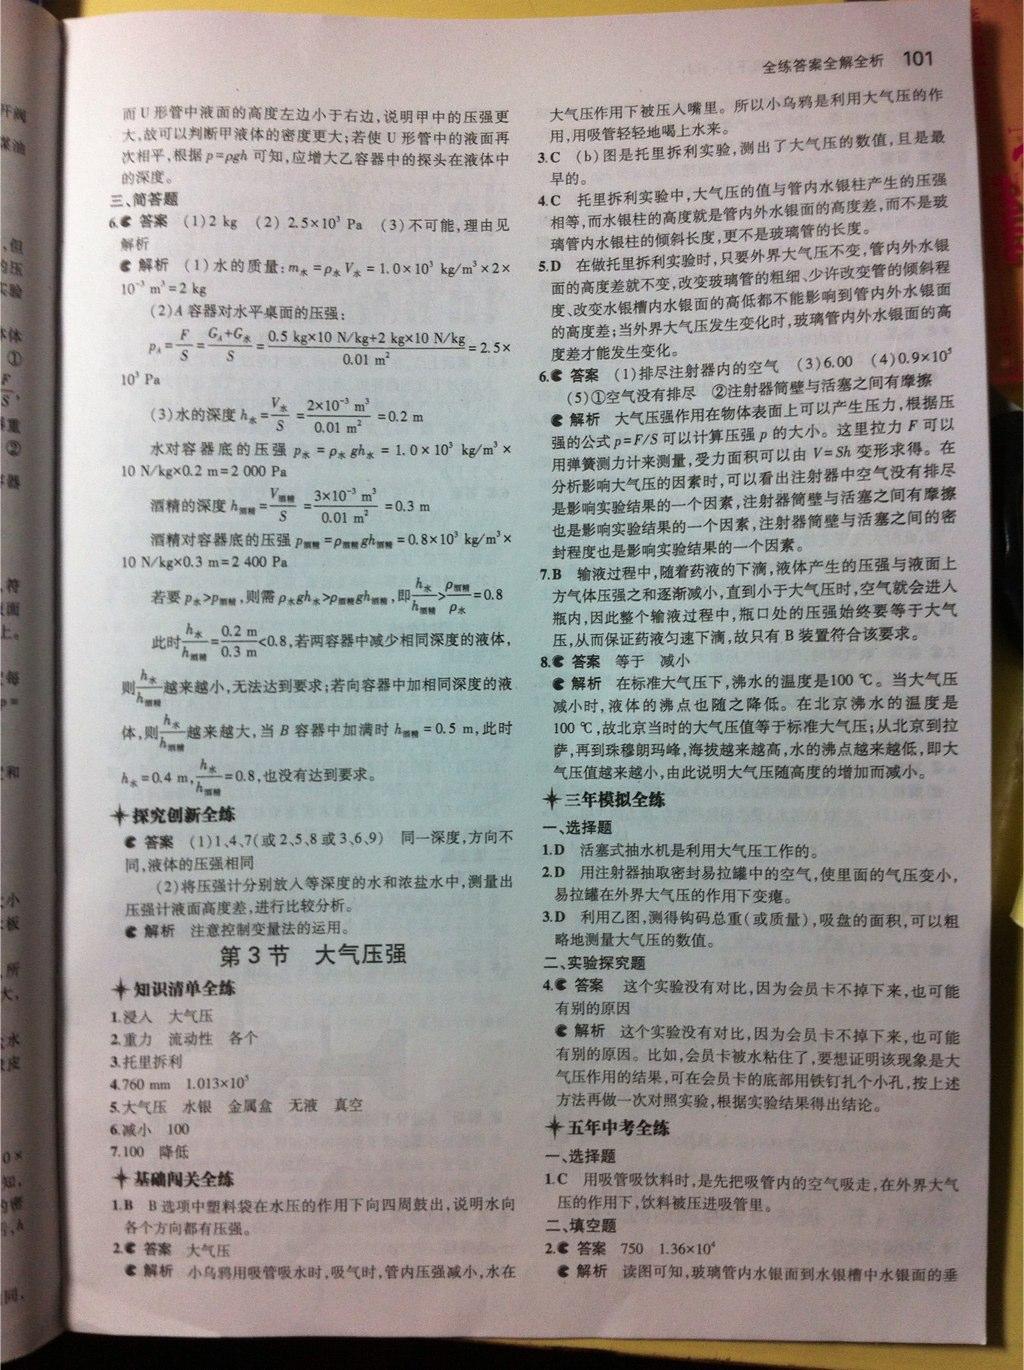 全练答案全解全析 101
而 U 形管中液面的高度左边小于右边,说明甲中的压强更
大,故可以判断甲液体的密度更大;若使 U 形管中的液面再
次相平,根据 p=ρgh 可知,应增大乙容器中的探头在液体中
的深度。
三、简答题
6. 答案 (1)2 kg (2) 2.5×10³ Pa (3)不可能,理由见
解析
解析 (1)水的质量:m水=ρ水V水=1.0×10³ kg/m³×2×
10⁻³ m³=2 kg
(2)A 容器对水平桌面的压强:
pA=F/S=(GA+G水)/S=(0.5 kg×10 N/kg+2 kg×10 N/kg)/0.01 m²=2.5×
10³ Pa
(3)水的深度 h水=V水/S=2×10⁻³ m³/0.01 m²=0.2 m
水对容器底的压强 p水=ρ水gh水=1.0×10³ kg/m³×
10 N/kg×0.2 m=2 000 Pa
酒精的深度 h酒精=V酒精/S=3×10⁻³ m³/0.01 m²=0.3 m
酒精对容器底的压强 p酒精=ρ酒精gh酒精=0.8×10³ kg/m³×
10 N/kg×0.3 m=2 400 Pa
若要 p水>p酒精,则需 ρ水gh水>ρ酒精gh酒精,即h水/h酒精>ρ酒精/ρ水=0.8
此时h水/h酒精=0.2 m/0.3 m<0.8,若两容器中减少相同深度的液体,
则h水/h酒精越来越小,无法达到要求;若向容器中加相同深度的液
体,则h水/h酒精越来越大,当 B 容器中加满时 h酒精=0.5 m,此时
h水=0.4 m,h水/h酒精=0.8,也没有达到要求。
探究创新全练
答案 (1)1、4、7(或 2、5、8 或 3、6、9) 同一深度,方向不
同,液体的压强相同
(2)将压强计分别放入等深度的水和浓盐水中,测量出
压强计液面高度差,进行比较分析。
解析 注意控制变量法的运用。
第 3 节 大气压强
知识清单全练
1.浸入 大气压
2.重力 流动性 各个
3.托里拆利
4.760 mm 1.013×10⁵
5.大气压 水银 金属盒 无液 真空
6.减小 100
7.100 降低
基础闯关全练
1.B B 选项中塑料袋在水压的作用下向四周鼓出,说明水向
各个方向都有压强。
2. 答案 大气压
解析 小乌鸦用吸管吸水时,吸气时,管内压强减小,水在
大气压作用下被压入嘴里。所以小乌鸦是利用大气压的作
用,用吸管轻轻地喝上水来。
3.C (b)图是托里拆利实验,测出了大气压的数值,且是最
早的。
4.C 托里拆利实验中,大气压的值与管内水银柱产生的压强
相等,而水银柱的高度就是管内外水银面的高度差,而不是玻
璃管内水银柱的倾斜长度,更不是玻璃管的长度。
5.D 在做托里拆利实验时,只要外界大气压不变,管内外水银
面的高度差就不变,改变玻璃管的粗细、少许改变管的倾斜程
度、改变水银槽内水银面的高低都不能影响到管内外水银面
的高度差;当外界大气压发生变化时,玻璃管内外水银面的高
度差才能发生变化。
6. 答案 (1)排尽注射器内的空气 (3)6.00 (4)0.9×10⁵
(5)①空气没有排尽 ②注射器筒壁与活塞之间有摩擦
解析 大气压强作用在物体表面上可以产生压力,根据压
强的公式 p=F/S 可以计算压强 p 的大小。这里拉力 F 可以
用弹簧测力计来测量,受力面积可以由 V=Sh 变形求得。在
分析影响大气压的因素时,可以看出注射器中空气没有排尽
是影响实验结果的一个因素,注射器筒壁与活塞之间有摩擦
也是影响实验结果的一个因素,注射器筒壁与活塞之间的密
封程度也是影响实验结果的一个因素。
7.B 输液过程中,随着药液的下滴,液体产生的压强与液面上
方气体压强之和逐渐减小,直到小于大气压时,空气就会进入
瓶内,因此整个输液过程中,瓶口处的压强始终要等于大气
压,从而保证药液匀速下滴,故只有 B 装置符合该要求。
8. 答案 等于 减小
解析 在标准大气压下,沸水的温度是100 ℃。当大气压
减小时,液体的沸点也随之降低。在北京沸水的温度是
100 ℃,故北京当时的大气压值等于标准大气压;从北京到拉
萨,再到珠穆朗玛峰,海拔越来越高,水的沸点越来越低,即大
气压值越来越小,由此说明大气压随高度的增加而减小。
三年模拟全练
一、选择题
1.D 活塞式抽水机是利用大气压工作的。
2.D 用注射器抽取密封易拉罐中的空气,使里面的气压变小,
易拉罐在外界大气压的作用下变瘪。
3.D 利用乙图,测得钩码总重(或质量),吸盘的面积,可以粗
略地测量大气压的数值。
二、实验探究题
4. 答案 这个实验没有对比,因为会员卡不掉下来,也可能
有别的原因
解析 这个实验没有对比,因为会员卡不掉下来,也可能
有别的原因。比如,会员卡被水粘住了,要想证明该现象是大
气压作用的结果,可在会员卡的底部用铁钉扎个小孔,按上述
方法再做一次对照实验,根据实验结果得出结论。
五年中考全练
一、选择题
1.C 用吸管吸饮料时,是先把吸管内的空气吸走,在外界大气
压的作用下,饮料被压进吸管里。
二、填空题
2. 答案 750 1.36×10⁴
解析 读图可知,玻璃管内水银面到水银槽中水银面的垂